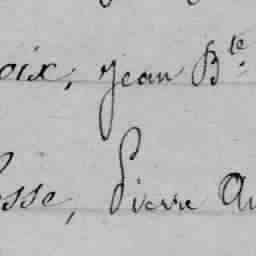 oix, Jean Bte
osse, Pierre Au